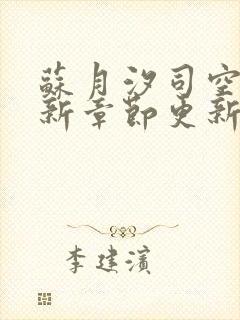 蘇月汐司空
新章節更新
李建濱